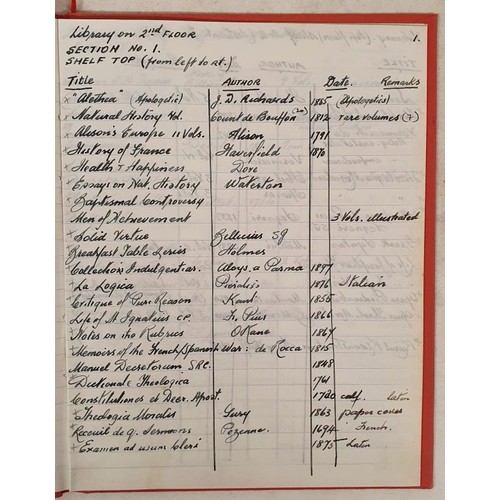 Library on 2nd FLOOR 1.
SECTION No. 1.
SHELF TOP (from left to rt.)
Title AUTHOR Date. Remarks
x "Alethea" (Apologetic) J. D. Richards 1885 (Apologetics)
x Natural History Vol. Count de Bouffon 1812 rare volumes (7)
x Alison's Europe 11 Vols. Alison 1791
x History of France Haverfield 1876
x Health & Happiness Dove
x Essays on Nat. History Waterton
x Baptismal Controversy
Men of Achievement 3 Vols. illustrated
x Solid Virtue Bellecius SJ
Breakfast Table Series Holmes
x Collection Indulgentiar. Aloys. a Parma 1897
x La Logica 1876 Italian
x Critique of Pure Reason Kant 1855
Life of St Ignatius C.P. Fr. Pius 1866
x Notes on the Rubrics O'Kane 1867
x Memoirs of the French/Spanish War: de Rocca 1815
Manuel Decretorum S.R.C. 1848
x Dictionale Theologica 1761
Constitutiones et Decr. Apost. 1720 calf. Latin
x Theologia Moralis Gury 1863 paper cover
Recueil de q. Sermons 1694 French.
x Examen ad usum Cleri 1875 Latin